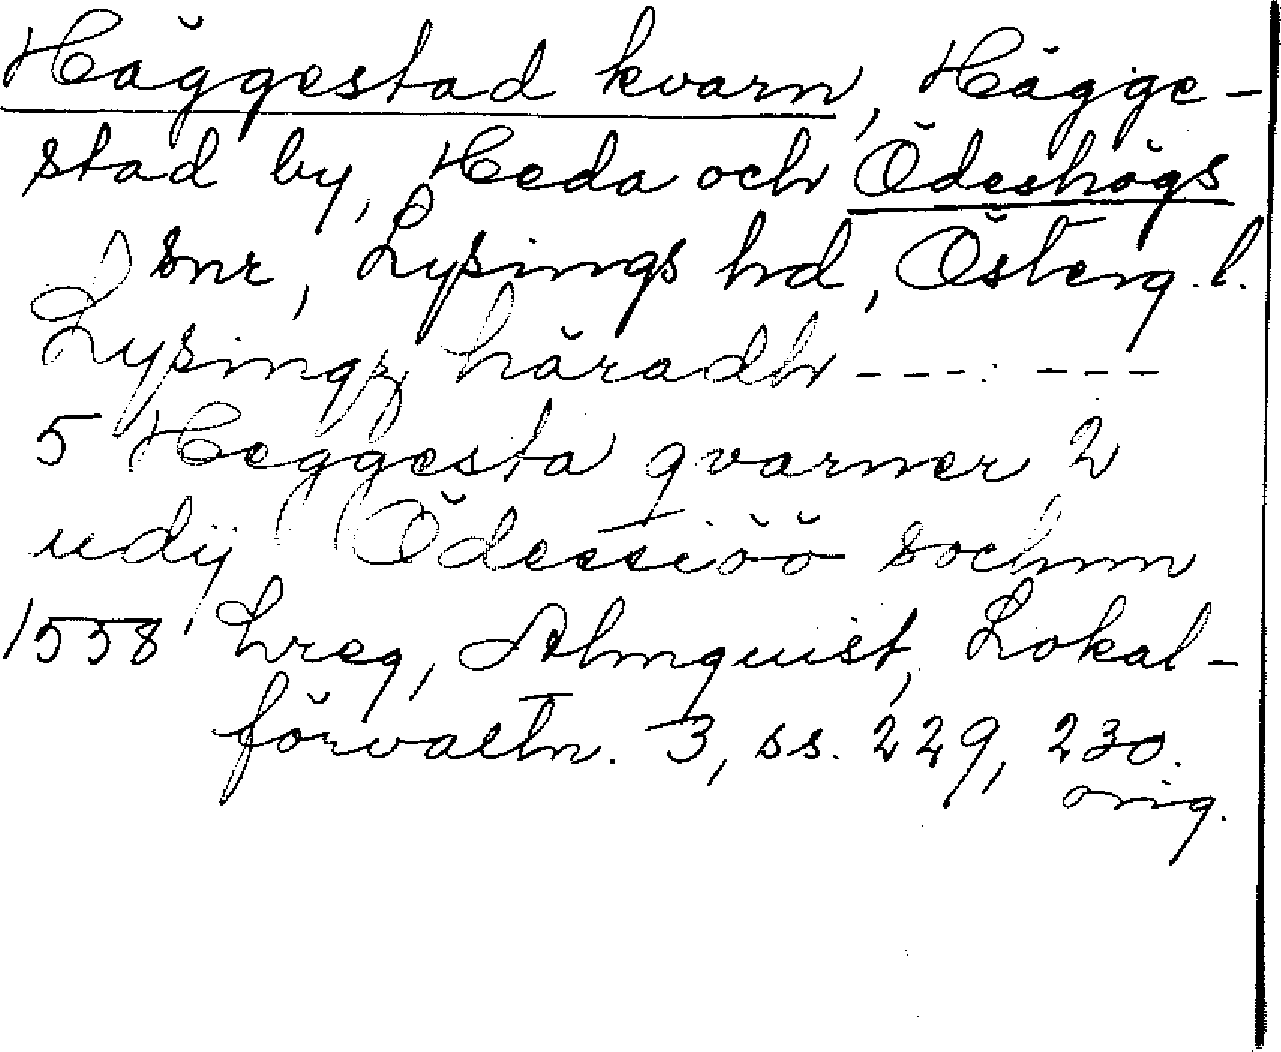 Häggestad kvarn, Hägge-
stad by, Heda och Ödeshögs
snr, Lysings hd, Österg. l.
Lysingz häradh --- ---
5 Heggesta qvarner 2
udij Ödessiöö sochnn
1558 Lreg, Almquist, Lokal-
förvaltn. 3, ss. 229, 230.
orig.